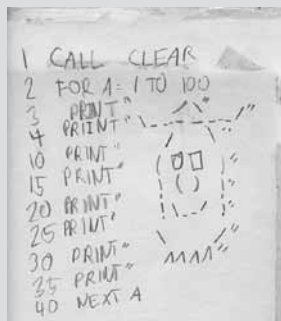 1 CALL CLEAR
2 FOR A = 1 TO 100
3 PRINT" /\"
4 PRIINT" \_-----_/"
10 PRINT" / \"
15 PRINT" ( 00 )"
20 PRINT" ! ( ) !"
25 PRINT" ! \_-/ !"
30 PRINT" \ /"
35 PRINT" MM"
40 NEXT A